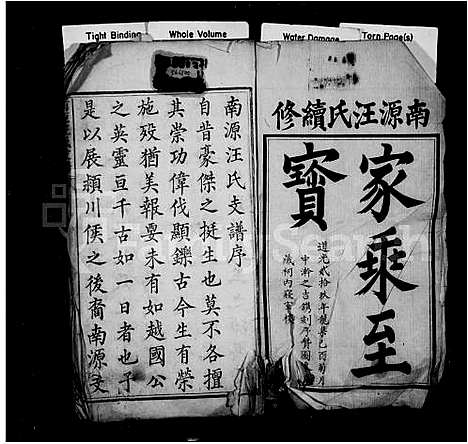 Tight Binding
Whole Volume
Water Damage
Torn Page(s)
南源汪氏續修
家乘至
寳
道光貳拾玖年
南源汪氏支譜序
自昔豪傑之挺生也莫不各擅
其崇功偉伐顯鑠古今生有榮
施殁猶美報要未有如越國公
之英靈亘千古如一日者也予
是以展潁川侯之後裔南源支